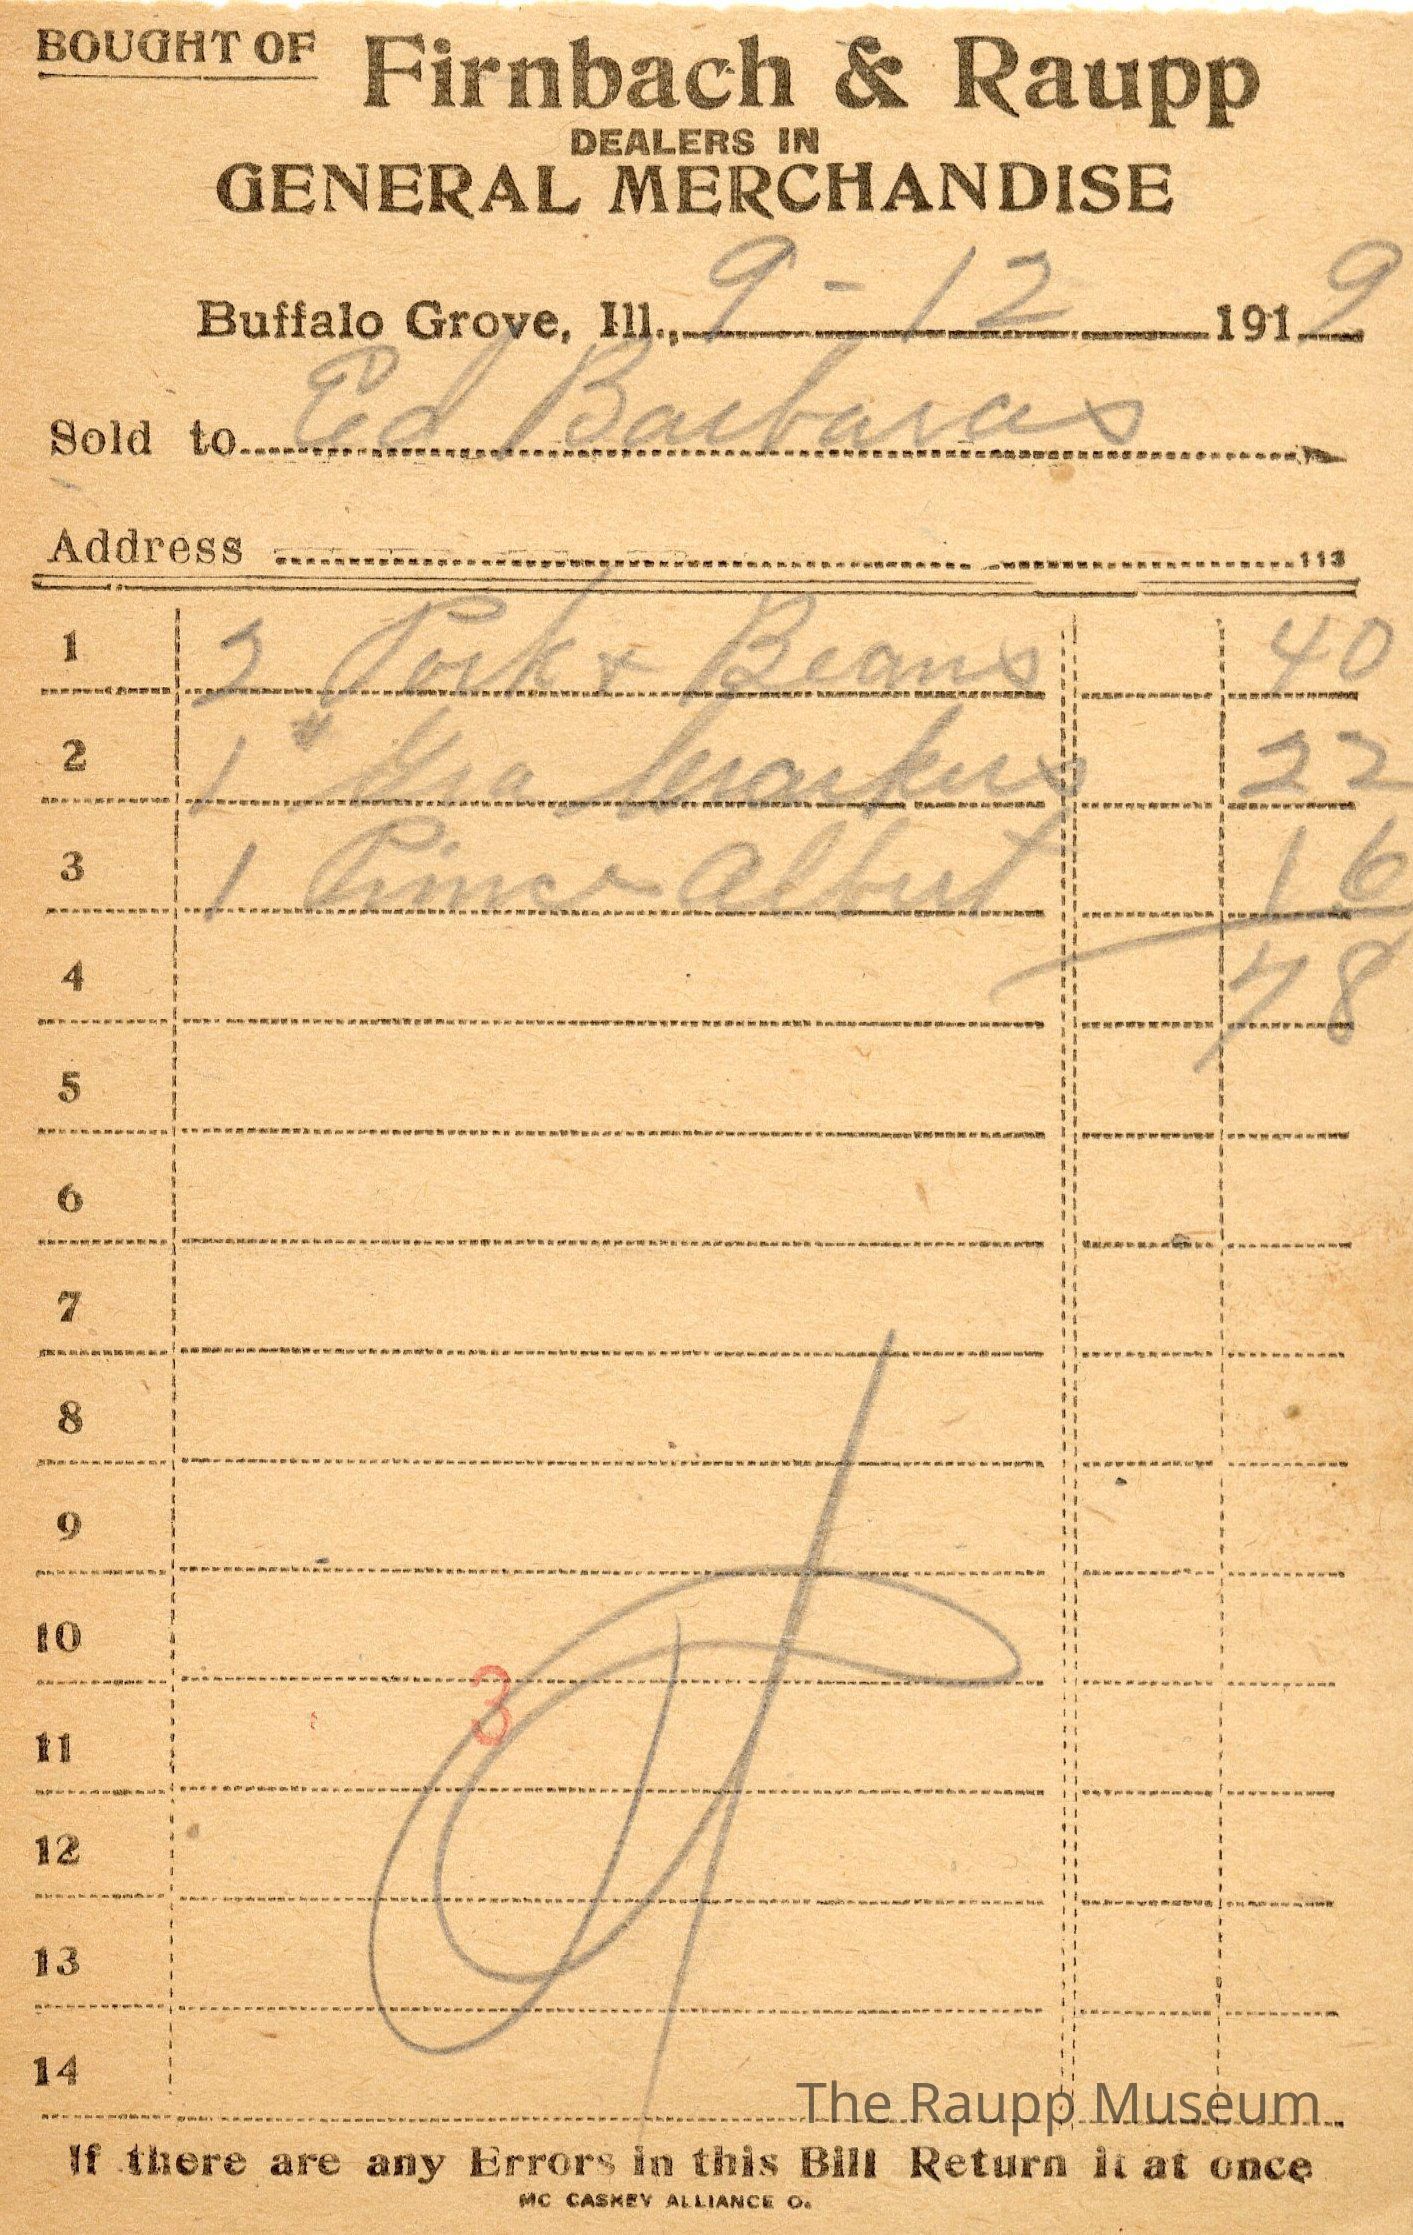 BOUGHT OF Firnbach & Raupp
DEALERS IN
GENERAL MERCHANDISE
Buffalo Grove, Ill., 9 - 12 1919
Sold to Ed Barbaras
Address 113
1 2 Pork & Beans 40
2 1 # Gra Crackers 22
3 1 Prince Albert 16
4 78
5
6
7
8
9
10
3
11
12
13
14
The Raupp Museum
If there are any Errors in this Bill Return it at once
MC CASKEY ALLIANCE O.